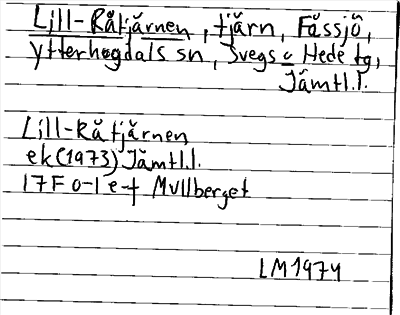 Lill-Råtjärnen, tjärn, Fåssjö,
Ytterhogdals sn, Svegs o Hede tg,
Jämtl.l.
Lill-Råtjärnen
ek(1973) Jämtl.l.
17F 0-1 e-f Mullberget
LM 1974